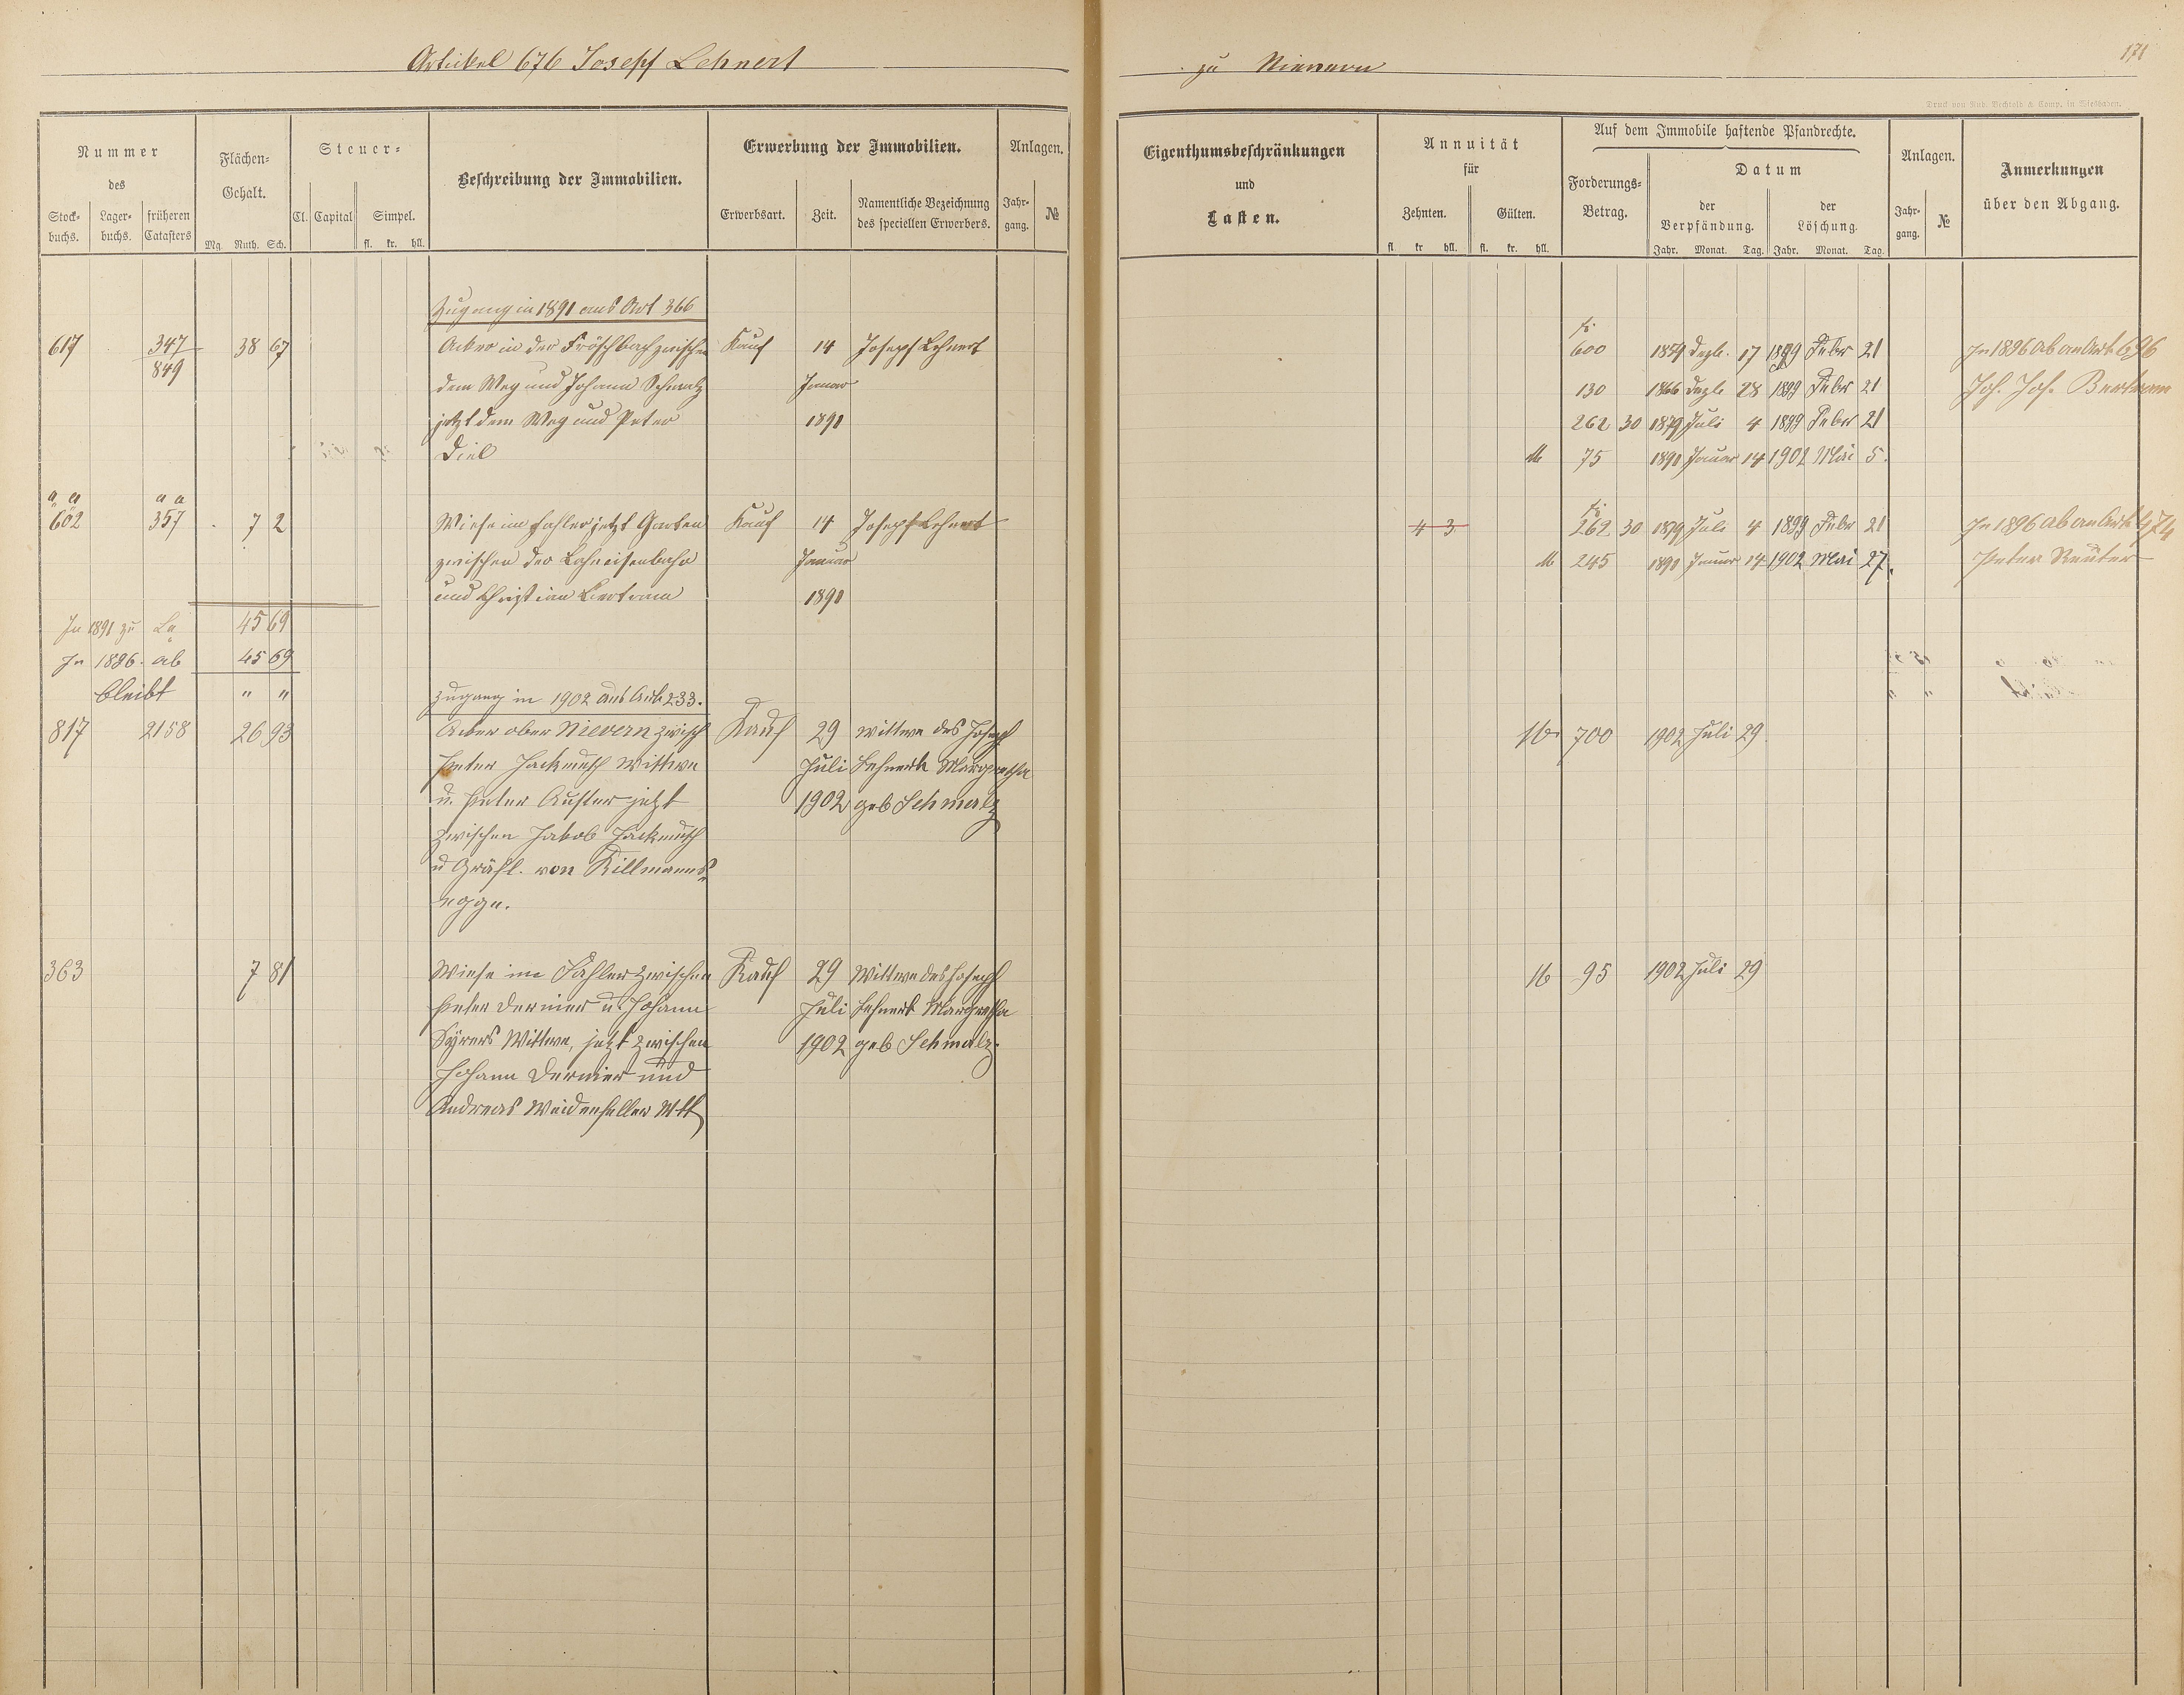 Artickel 676 Joseph Lehnert
zu Nievern
171
Druck von Rud. Bechtold & Comp. in Wiesbaden.
Nummer
des
Stock-buchs. Lager-buchs. früheren Catasters
Flächen-Gehalt.
Mg. Ruth. Sch.
Steuer-
Cl. Capital Simpel.
fl. kr. hll.
Beschreibung der Immobilien.
Erwerbung der Immobilien.
Erwerbsart. Zeit. Namentliche Bezeichnung des speciellen Erwerbers.
Anlagen.
Jahr-gang. №
Eigenthumsbeschränkungen
und
Lasten.
Annuität
für
Zehnten. Gülten.
fl. kr hll. fl. kr. hll.
Auf dem Immobile haftende Pfandrechte.
Forderungs-Betrag.
Datum
der Verpfändung. der Löschung.
Jahr. Monat. Tag. Jahr. Monat. Tag.
Anlagen.
Jahr-gang. №
Anmerkungen
über den Abgang.
Zugang in 1891 aus Art 366
617 347 38 67 Acker in der Fröschbach zwischen Kauf 14 Joseph Lehnert
849 dem Weg und Johann Schmalz Januar
jetzt dem Weg und Peter 1890
Diel
fl.
600 1859 Dezb. 17 1899 Febr 21 In 1896 ab an Art 696
130 1866 Dezb 28 1899 Febr 21 Joh. Jos. Bertram
262 30 1879 Juli 4 1899 Febr 21
M 75 1890 Januar 14 1902 Mai 5.
a a a a
602 357 7 2 Wiese im Fahler jetzt Garten Kauf 14 Joseph Lehnert
zwischen der Lahneisenbahn Januar
und Christian Bertram 1890
fl.
4 3 262 30 1879 Juli 4 1899 Febr 21 In 1896 ab an Art 474
M 245 1890 Januar 14 1902 Mai 27. Peter Reuter
In 1891 zu La 45 69
In 1896. ab 45 69
bleibt " "
Zugang in 1902 aus Art 233.
817 2158 26 93 Acker ober Nievern zwisch Kauf 29 Wittwe des Joseph
Peter Hackmusch Wittwe Juli Lehnert Margretha
u. Peter Auster jetzt 1902 geb Schmalz
zwischen Jakob Hackmusch
u Gräfl. von Killmanns-
egge.
M 700 1902 Juli 29
363 7 81 Wiese im Fahler zwischen Kauf 29 Wittwe des Joseph
Peter Dernier u. Johann Juli Lehnert Margretha
Wittwe, jetzt zwischen 1902 geb Schmalz.
Johann Dernier und
Andreas Weidenfeller Wtt
M 95 1902 Juli 29